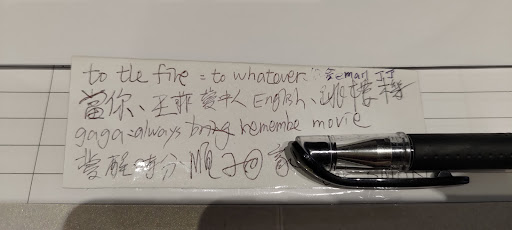 to the fire = to whatever: e-man
當你、王菲 愛人 English、跳樓梯
gaga-always bring remembe movie
愛醒時分 順子